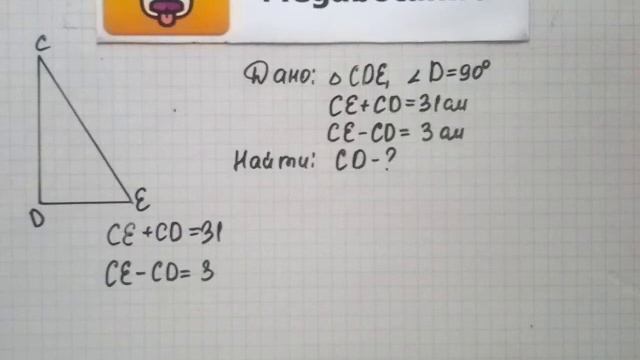 C
Дано: △ CDE, ∠ D=90°
CE+CD=31см
CE-CD= 3 см
Найти: CD-?
D
E
CE+CD=31
CE-CD= 3